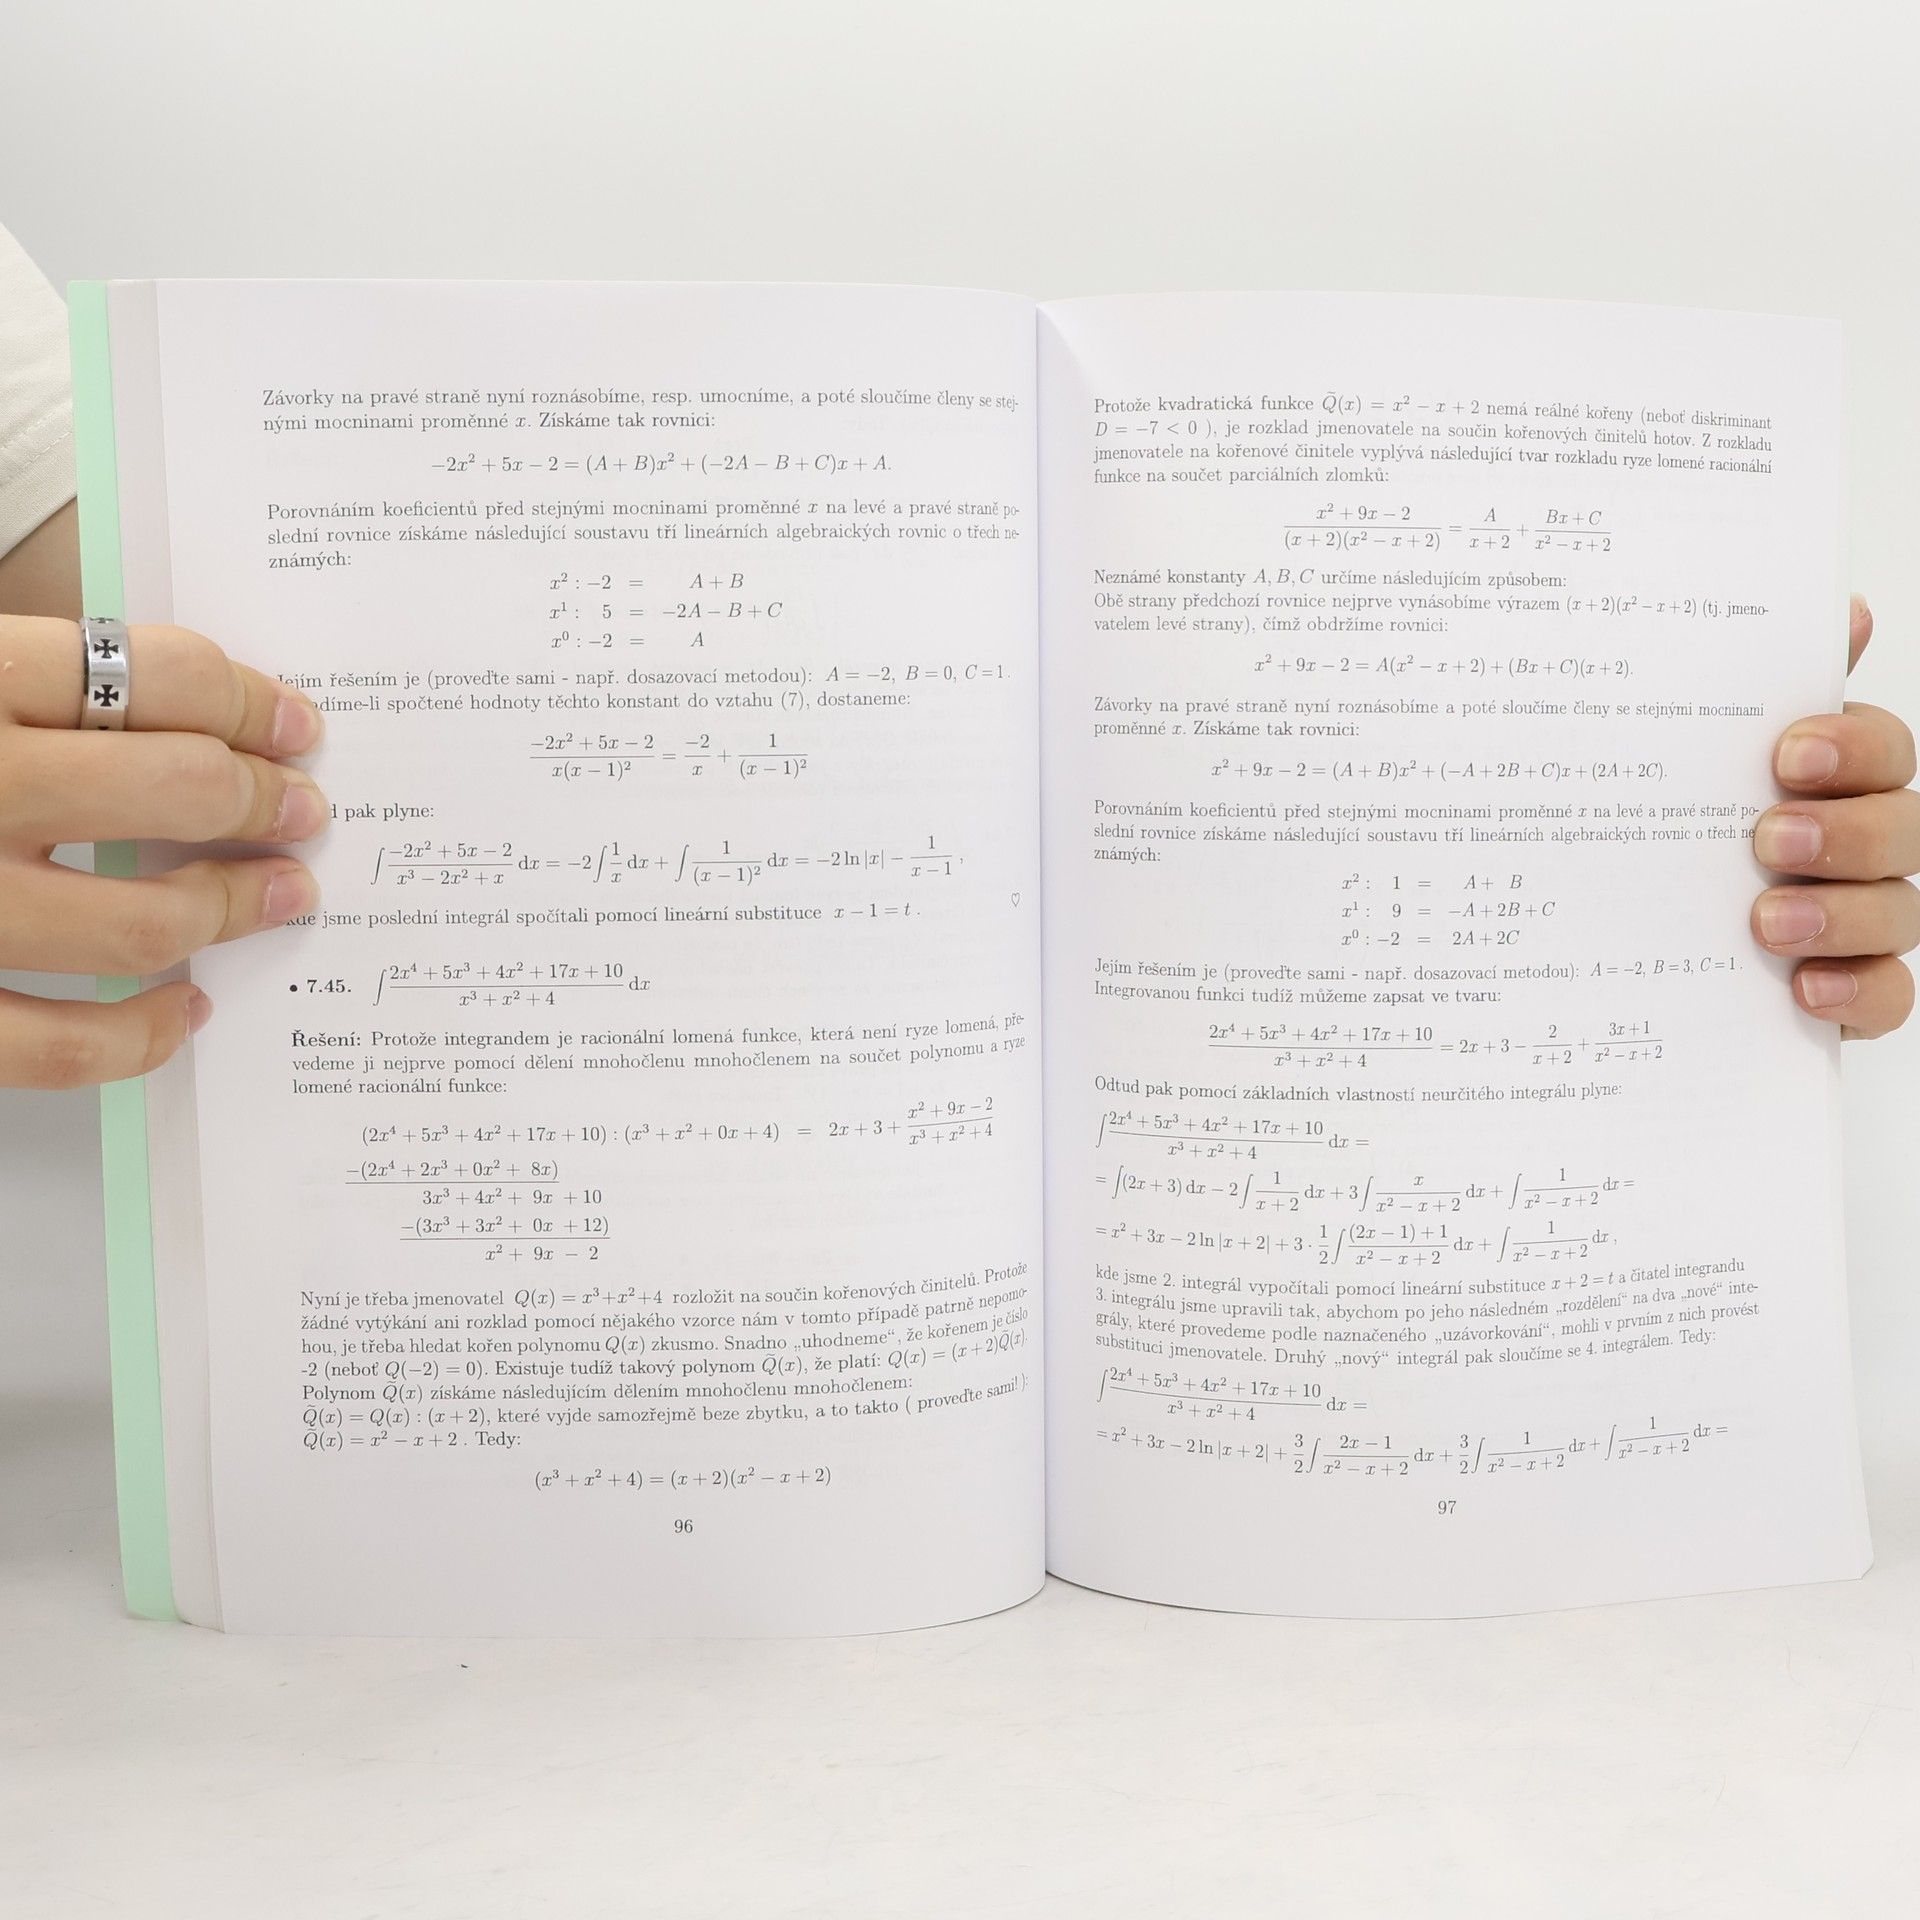 Závorky na pravé straně nyní roznásobíme, resp. umocníme, a poté sloučíme členy se stej-
nými mocninami proměnné x. Získáme tak rovnici:
−2x² + 5x − 2 = (A + B)x² + (−2A − B + C)x + A.
Porovnáním koeficientů před stejnými mocninami proměnné x na levé a pravé straně po-
slední rovnice získáme následující soustavu tří lineárních algebraických rovnic o třech ne-
známých:
x² : −2 = A + B
x¹ : 5 = −2A − B + C
x⁰ : −2 = A
řešením je (proveďte sami - např. dosazovací metodou): A = −2, B = 0, C = 1.
spočtené hodnoty těchto konstant do vztahu (7), dostaneme:
(−2x² + 5x − 2)/(x(x − 1)²) = −2/x + 1/(x − 1)²
pak plyne:
∫ (−2x² + 5x − 2)/(x³ − 2x² + x) dx = −2 ∫ 1/x dx + ∫ 1/(x − 1)² dx = −2 ln |x| − 1/(x − 1) ,
kde jsme poslední integrál spočítali pomocí lineární substituce x − 1 = t . ♡
• 7.45. ∫ (2x⁴ + 5x³ + 4x² + 17x + 10)/(x³ + x² + 4) dx
Řešení: Protože integrandem je racionální lomená funkce, která není ryze lomená, pře-
vedeme ji nejprve pomocí dělení mnohočlenu mnohočlenem na součet polynomu a ryze
lomené racionální funkce:
(2x⁴ + 5x³ + 4x² + 17x + 10) : (x³ + x² + 0x + 4) = 2x + 3 + (x² + 9x − 2)/(x³ + x² + 4)
−(2x⁴ + 2x³ + 0x² + 8x)
3x³ + 4x² + 9x + 10
−(3x³ + 3x² + 0x + 12)
x² + 9x − 2
Nyní je třeba jmenovatel Q(x) = x³+x²+4 rozložit na součin kořenových činitelů. Protože
žádné vytýkání ani rozklad pomocí nějakého vzorce nám v tomto případě patrně nepomo-
hou, je třeba hledat kořen polynomu Q(x) zkusmo. Snadno „uhodneme“, že kořenem je číslo
-2 (neboť Q(−2) = 0). Existuje tudíž takový polynom Q̃(x), že platí: Q(x) = (x + 2)Q̃(x).
Polynom Q̃(x) získáme následujícím dělením mnohočlenu mnohočlenem:
Q̃(x) = Q(x) : (x + 2), které vyjde samozřejmě beze zbytku, a to takto ( proveďte sami! ):
Q̃(x) = x² − x + 2 . Tedy:
(x³ + x² + 4) = (x + 2)(x² − x + 2)
96
Protože kvadratická funkce Q̃(x) = x² − x + 2 nemá reálné kořeny (neboť diskriminant
D = −7 < 0 ), je rozklad jmenovatele na součin kořenových činitelů hotov. Z rozkladu
jmenovatele na kořenové činitele vyplývá následující tvar rozkladu ryze lomené racionální
funkce na součet parciálních zlomků:
(x² + 9x − 2)/((x + 2)(x² − x + 2)) = A/(x + 2) + (Bx + C)/(x² − x + 2)
Neznámé konstanty A, B, C určíme následujícím způsobem:
Obě strany předchozí rovnice nejprve vynásobíme výrazem (x + 2)(x² − x + 2) (tj. jmeno-
vatelem levé strany), čímž obdržíme rovnici:
x² + 9x − 2 = A(x² − x + 2) + (Bx + C)(x + 2).
Závorky na pravé straně nyní roznásobíme a poté sloučíme členy se stejnými mocninami
proměnné x. Získáme tak rovnici:
x² + 9x − 2 = (A + B)x² + (−A + 2B + C)x + (2A + 2C).
Porovnáním koeficientů před stejnými mocninami proměnné x na levé a pravé straně po-
slední rovnice získáme následující soustavu tří lineárních algebraických rovnic o třech ne
známých:
x² : 1 = A + B
x¹ : 9 = −A + 2B + C
x⁰ : −2 = 2A + 2C
Jejím řešením je (proveďte sami - např. dosazovací metodou): A = −2, B = 3, C = 1.
Integrovanou funkci tudíž můžeme zapsat ve tvaru:
(2x⁴ + 5x³ + 4x² + 17x + 10)/(x³ + x² + 4) = 2x + 3 − 2/(x + 2) + (3x + 1)/(x² − x + 2)
Odtud pak pomocí základních vlastností neurčitého integrálu plyne:
∫ (2x⁴ + 5x³ + 4x² + 17x + 10)/(x³ + x² + 4) dx =
= ∫ (2x + 3) dx − 2 ∫ 1/(x + 2) dx + 3 ∫ x/(x² − x + 2) dx + ∫ 1/(x² − x + 2) dx =
= x² + 3x − 2 ln |x + 2| + 3 · 1/2 ∫ ((2x − 1) + 1)/(x² − x + 2) dx + ∫ 1/(x² − x + 2) dx ,
kde jsme 2. integrál vypočítali pomocí lineární substituce x + 2 = t a čitatel integrandu
3. integrálu jsme upravili tak, abychom po jeho následném „rozdělení“ na dva „nové“ inte-
grály, které provedeme podle naznačeného „uzávorkování“, mohli v prvním z nich provést
substituci jmenovatele. Druhý „nový“ integrál pak sloučíme se 4. integrálem. Tedy:
∫ (2x⁴ + 5x³ + 4x² + 17x + 10)/(x³ + x² + 4) dx =
= x² + 3x − 2 ln |x + 2| + 3/2 ∫ (2x − 1)/(x² − x + 2) dx + 3/2 ∫ 1/(x² − x + 2) dx + ∫ 1/(x² − x + 2) dx =
97